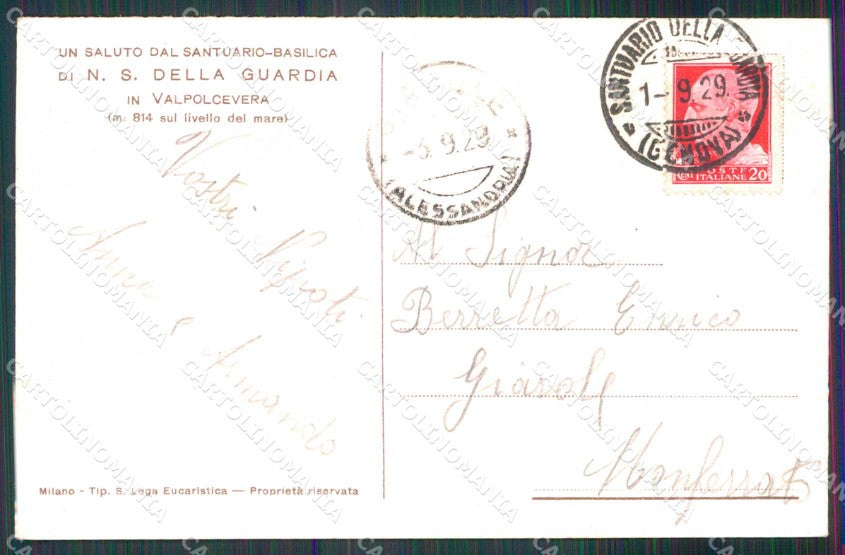 UN SALUTO DAL SANTUARIO-BASILICA
DI N. S. DELLA GUARDIA
IN VALPOLCEVERA
(m. 814 sul livello del mare)
Vostri Nipoti
Anna e Armando
Milano - Tip. S. Lega Eucaristica — Proprietà riservata
9.29
(ALESSANDRIA)
SANTUARIO DELLA GUARDIA
1-9.29.
(GENOVA)
POSTE
ITALIANE 20
Al Signor
Berretta Enrico
Giarole
Monferrato
CARTOLINOMANIA